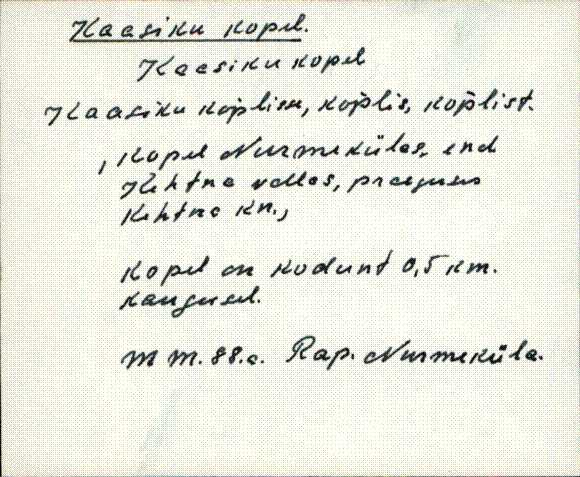 Kaasiku kopel.
Kaasiku kopel
Kaasiku koplisse, koplis, koplist.
, Kopel Nurmekülas, end
Kehtna vallas, praeguses
Kehtna kn.,
Kopel on kodunt 0,5 km.
kaugusel.
M M. 88.a. Rap. Nurmeküla.